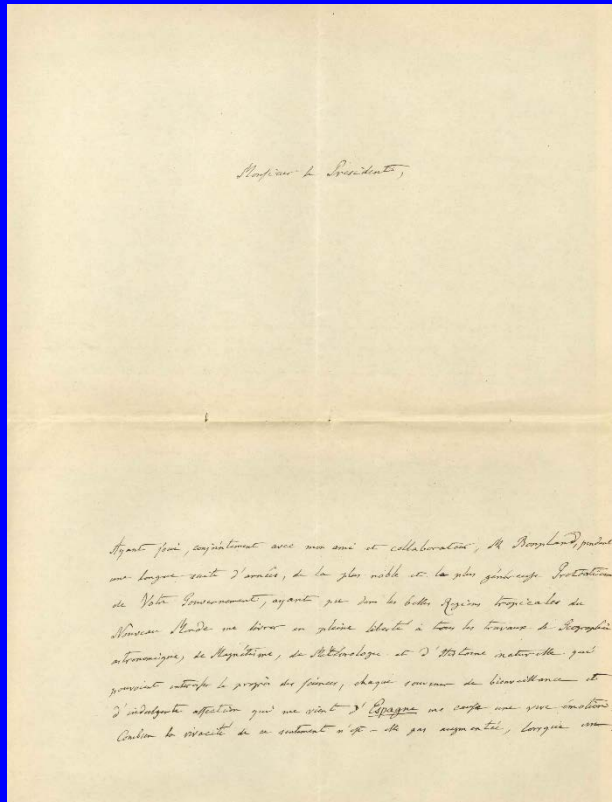 Monsieur le Président,
Ayant joui, conjointement avec mon ami et collaborateur, M Bonpland, pendant
une longue suite d'années, de la plus noble et la plus généreuse Protection
de Votre Gouvernement, ayant pu dans les belles Régions tropicales du
Nouveau Monde me livrer en pleine liberté à tous les travaux de Géographie
astronomique, de Magnétisme, de Météorologie et d'Histoire naturelle qui
pouvoient intéresser le progrès des sciences, chaque souvenir de bienveillance et
d'indulgente affection qui me vient d'Espagne me cause une vive émotion
Combien la vivacité de ce sentiment n'est-elle pas augmentée, lorsque